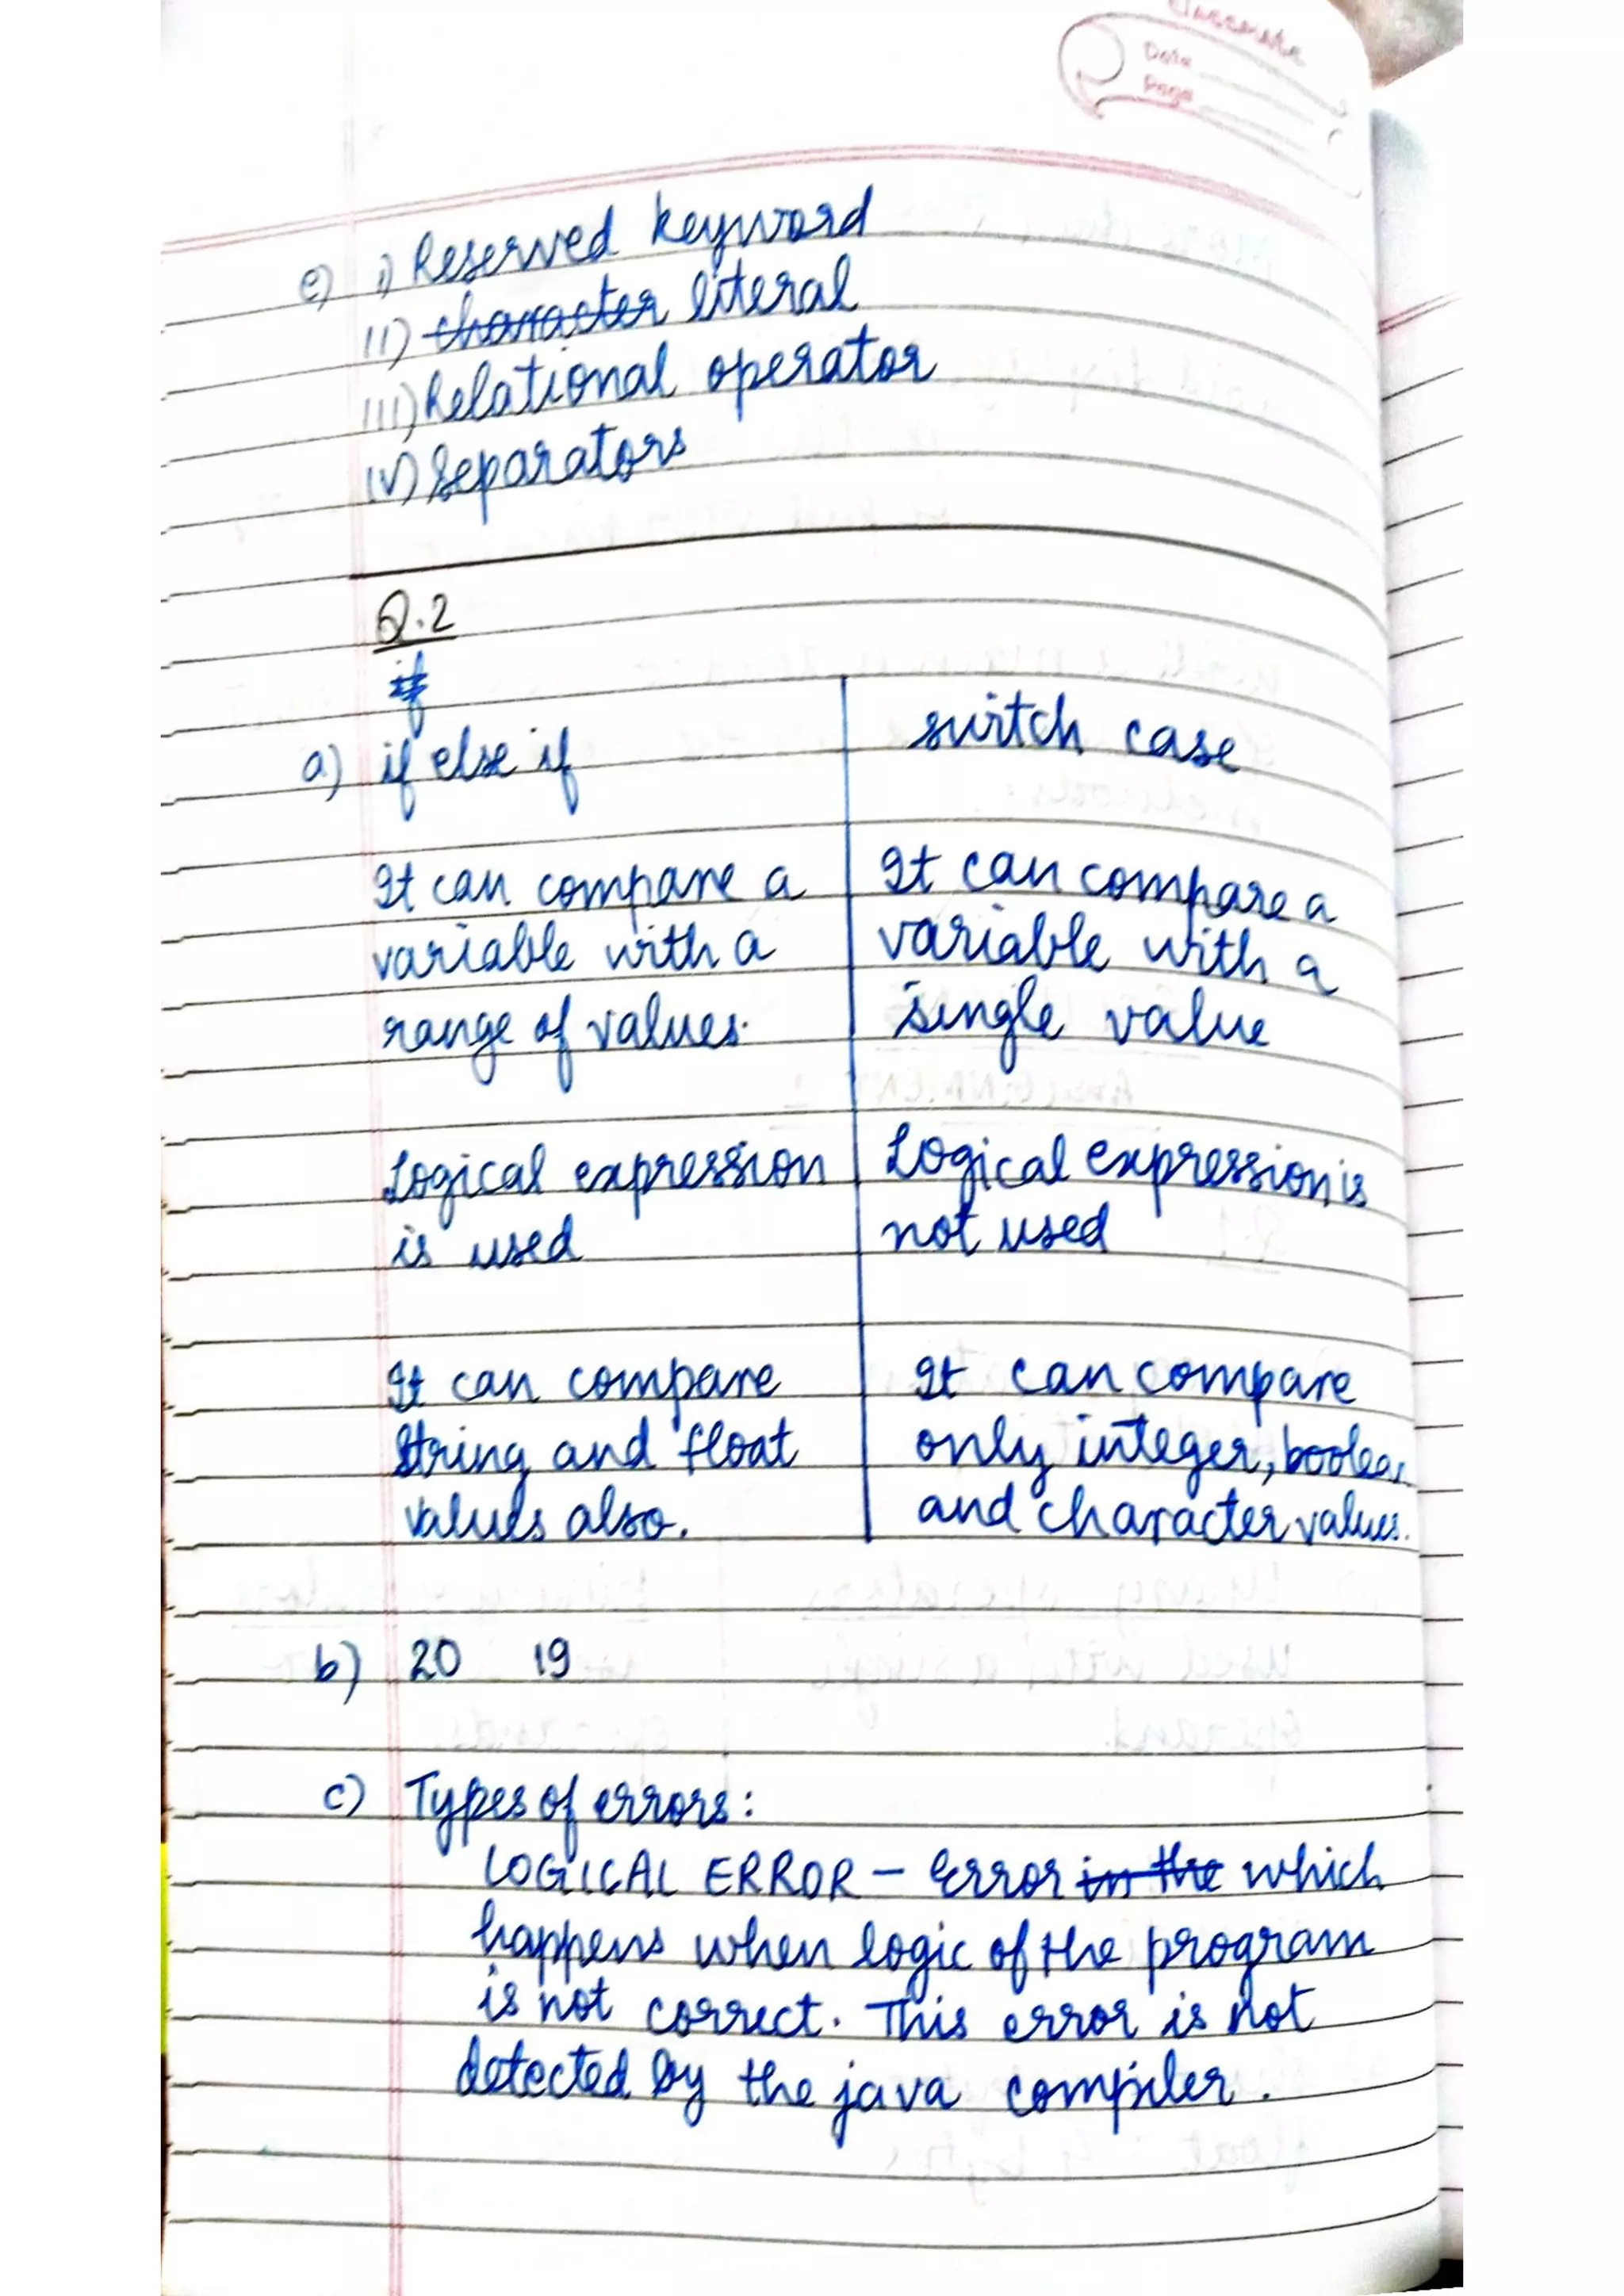 classmate
Date
Page
e) i) Reserved keyword
ii) character literal
iii) Relational operator
iv) Separators
Q.2
if
a) if else if | switch case
It can compare a | It can compare a
variable with a | variable with a
range of values. | single value
Logical expression | Logical expression is
is used | not used
It can compare | It can compare
String and float | only integer, boolean
values also. | and character values.
b) 20 19
c) Types of errors:
LOGICAL ERROR - Error in the which
happens when logic of the program
is not correct. This error is not
detected by the java compiler.